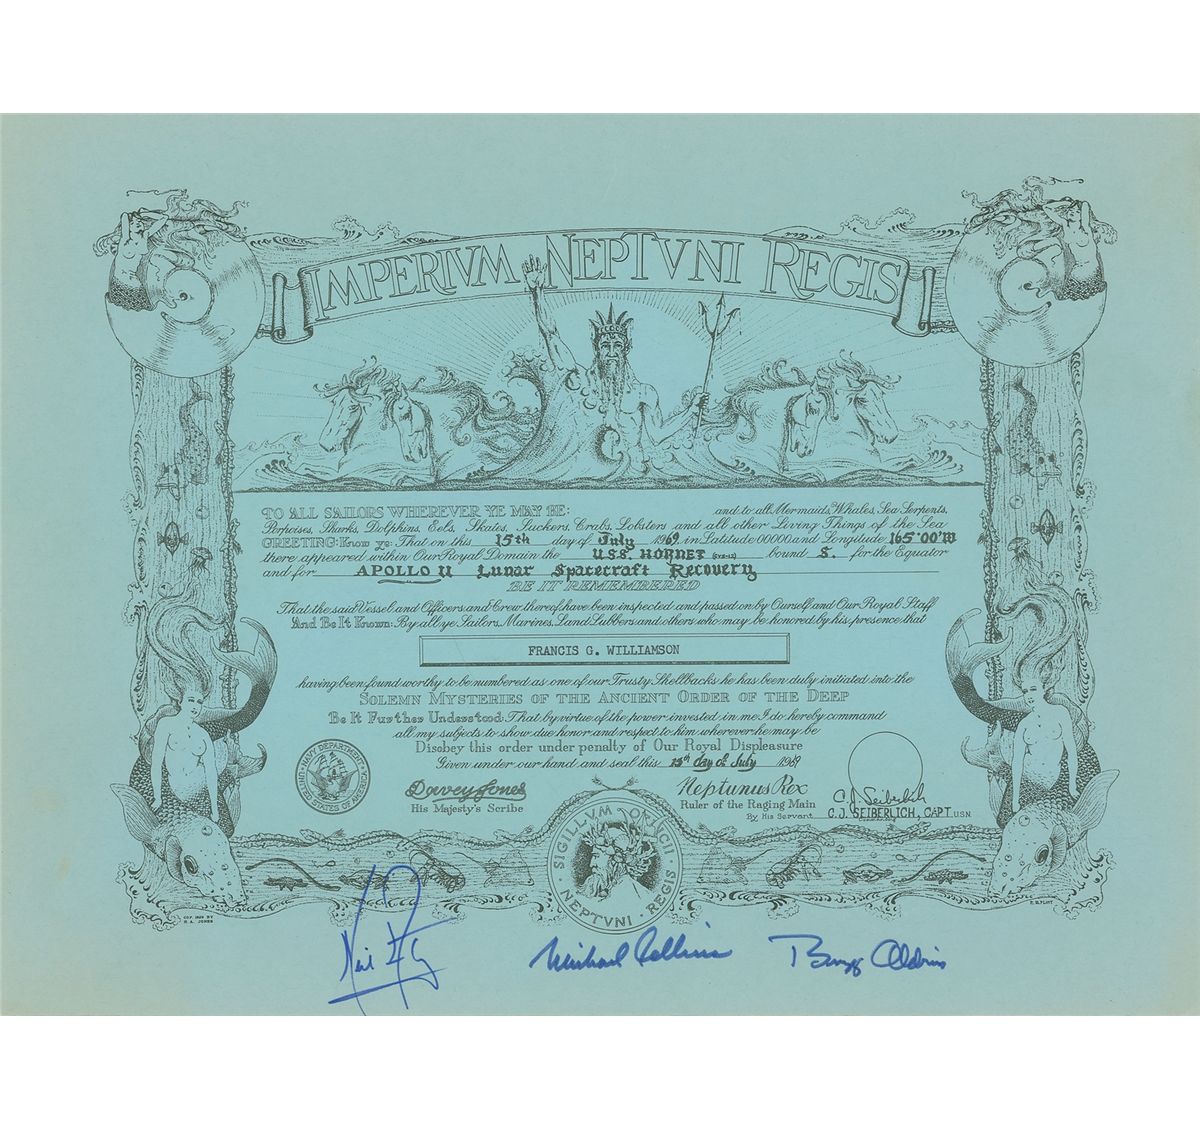 IMPERIVM NEPTVNI REGIS
TO ALL SAILORS WHEREVER YE MAY BE: and to all Mermaids, Whales, Sea Serpents,
Porpoises, Sharks, Dolphins, Eels, Skates, Suckers, Crabs, Lobsters and all other Living Things of the Sea
GREETING: Know ye: That on this 15th day of July 1969, in Latitude 00000 and Longitude 165°00'W
there appeared within Our Royal Domain the U.S.S. HORNET (CVS-12) bound S. for the Equator
and for APOLLO 11 Lunar Spacecraft Recovery
BE IT REMEMBERED
That the said Vessel and Officers and Crew thereof have been inspected and passed on by Ourself and Our Royal Staff
And Be It Known: By all ye Sailors, Marines, Land Lubbers and others who may be honored by his presence that
FRANCIS G. WILLIAMSON
having been found worthy to be numbered as one of our Trusty Shellbacks he has been duly initiated into the
SOLEMN MYSTERIES OF THE ANCIENT ORDER OF THE DEEP
Be It Further Understood: That by virtue of the power invested in me I do hereby command
all my subjects to show due honor and respect to him wherever he may be
Disobey this order under penalty of Our Royal Displeasure
Given under our hand and seal this 15th day of July 1969
NAVY DEPARTMENT
UNITED STATES OF AMERICA
Davey Jones
His Majesty's Scribe
Neptunus Rex
Ruler of the Raging Main
By His Servant
C.J. Seiberlich
C.J. SEIBERLICH, CAPT USN
SIGILLVM
NEPTVNI REGIS
Neil
Michael Collins
Buzz Aldrin